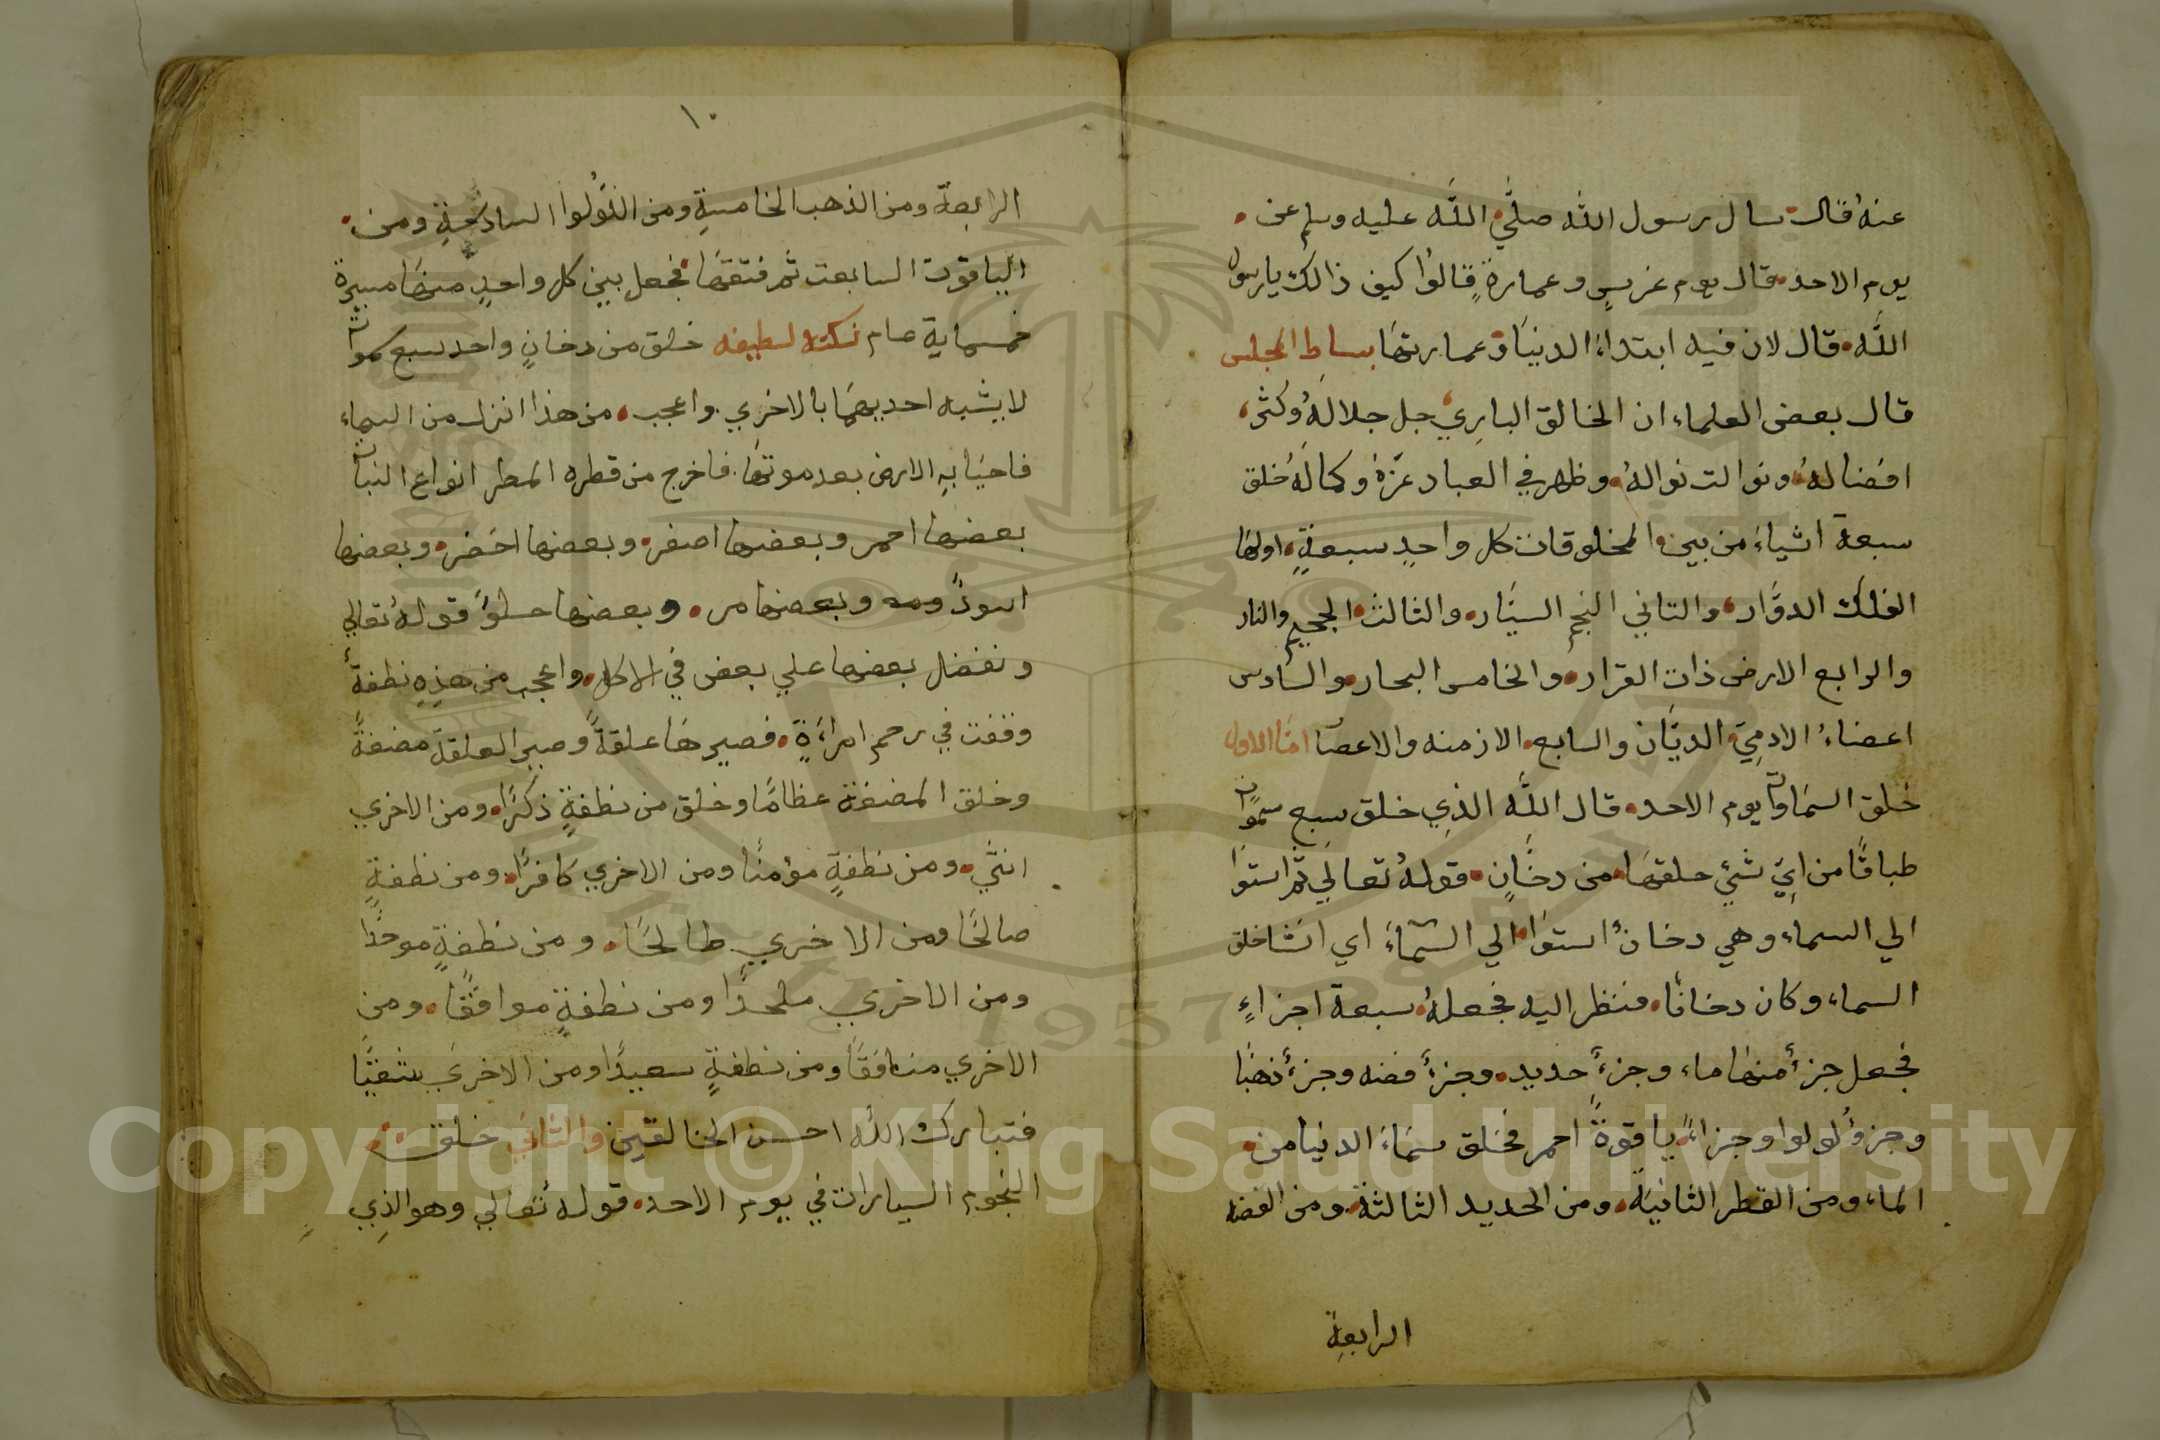 عنهُ قال سال رسول الله صلَّي اللَّه عليه وسلم عن
يوم الاحد قال يوم غرسٍ وعمارةٍ قالوُا كيف ذالك يارسول
اللَّه قال لان فيه ابتداءُ الدينَا وعمارتهَا بساط المجلس
قال بعض العلماء ان الخالق الباري جل جلالَهُ وكثر
افضالهُ وتوالت نوالهُ وظهر في العباد عزّهُ وكمالَهُ خلق
سبعة اشياءَ من بين المخلوقات كل واحدٍ سبعةٍ اولها
الفلك الدوَّار والتاني النجم السيَّار والثالث الجحيم والنار
والرابع الارض ذات القرار والخامس البحار والسادس
اعضاءُ الادمِيّ الديَّان والسابع الازمنه والاعصاَ امّا الاول
خلق السمَاوات يوم الاحد قال اللَّه الذِي خلق سبع سموَات
طباقًا من ايّ شئٍ خلقهَا من دخَانٍ قولهُ تعالي ثم استوَا
الي السماء وهي دخانٌ استوَا الي السَّمآءَ اي انشا خلق
السماء وكان دخانًا فنظر اليه فجعلهُ سبعة اجزاءٍ
فجعل جزأ منهَا ماء وجزءً حديد وجزأ فضه وجزأ ذهبًا
وجزؤُ لولوا وجزاءً ياقوةً احمر فخلق سمَاءَ الدنيا من
الماء ومن القطر الثانيَة ومن الحديد الثالثة ومن الفضه
الرابعةِ
١٠
الرابعةَ ومن الذهب الخامسةِ ومن اللُؤلوا السادسةِ ومن
الياقوت السابعت ثم فتقهَا فجعل بين كل واحدٍ منهَا مسيرة
خمسماية عام نكته لطيفه خلق من دخانٍ واحد سبع سموات
لا يشبه احديهمَا بالاخري واعجب من هذا انزل من السماء
فاحيَا بهِ الارض بعد موتهَا فاخرج من قطره المطر انواع النبات
بعضها احمر وبعضها اصفر وبعضها اخضر وبعضها
اسودُ ومه وبعضها مر وبعضها حلوً قولهُ تعالي
ونفضل بعضها علي بعض في الاكل واعجب من هذِهِ نطفةً
وقفت في رحم امراءَةٍ فصيرهَا علقةً وصير العلقةَ مضغةً
وخلق المضغة عظامًا وخلق من نطفةٍ ذكرًا ومن الاخري
انثَي ومن نطفةٍ مؤمنًا ومن الاخري كافرًا ومن نطفةٍ
صالحًا ومن الاخري طالحًا ومن نطفةٍ موحدًا
ومن الاخري ملحدًا ومن نطفةٍ موافقًا ومن
الاخري منافقًا ومن نطفةٍ سعيدًا ومن الاخري شقيًّا
فتبارك اللَّه احسن الخالقين والثاني خلق
النجوم السيارات في يوم الاحد قولهُ تعالي وهو الذِي
Copyright © King Saud University
1957